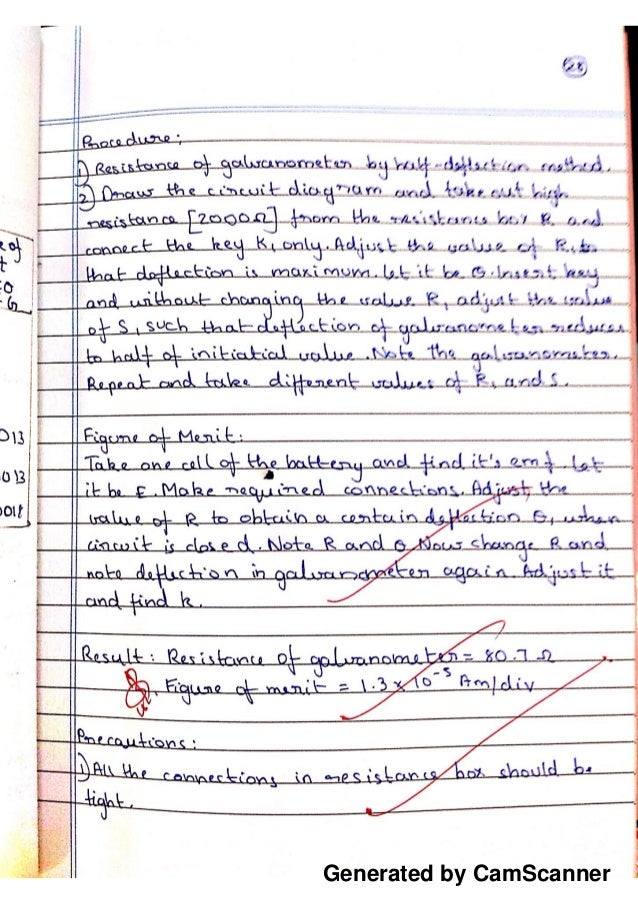 28
Procedure:
1) Resistance of galvanometer by half-deflection method.
2) Draw the circuit diagram and take out high
resistance [2000Ω] from the resistance box R and
connect the key K, only. Adjust the value of R, to
that deflection is maximum. let it be θ. Insert key
and without changing the value R, adjust the value
of S, such that deflection of galvanometer reduces
to half of initiatial value. Note the galvanometer.
Repeat and take different values of R, and S.
Figure of Merit:
Take one cell of the battery and find it's emf. let
it be E. Make required connections. Adjust, the
value of R to obtain a certain deflection θ, when
circuit is closed. Note R and θ. Now change R and
note deflection in galvanometer again. Adjust it
and find k.
Result: Resistance of galvanometer = 80.7 Ω
Figure of merit = 1.3 x 10⁻⁵ Am/div
Precautions:
1) All the connections in resistance box should be
tight.
of
t
013
013
018
Generated by CamScanner